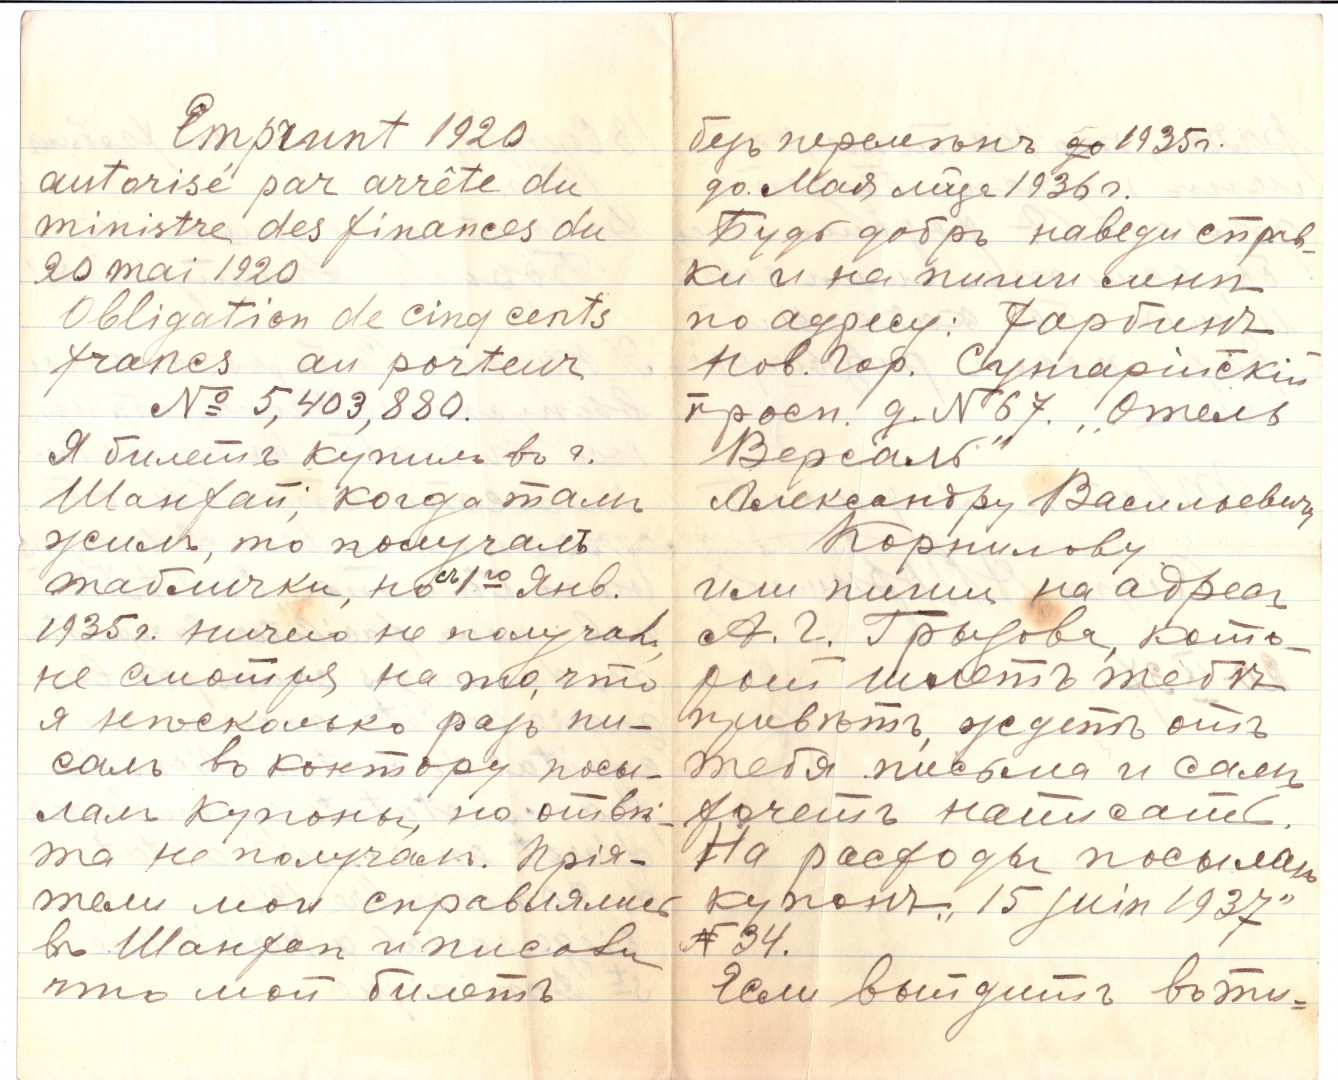 Emprunt 1920
autorisé par arrête du
ministre des finances du
20 mai 1920
Obligation de cinq cents
francs au porteur
№ 5,403,880.
Я билетъ купилъ въ г.
Шанхай; когда тамъ
жилъ, то получалъ
таблички, но съ 1го Янв.
1935г. ничего не получалъ,
не смотря на то, что
я нѣсколько разъ пи-
салъ въ контору посы-
лалъ купоны, но отвѣ-
та не получалъ. Прія-
тели мои справлялись
въ Шанхаѣ и писали
что мой билетъ
безъ перемѣнъ до 1935г.
до Мая м-ца 1936г.
Будь добръ наведи справ-
ки и напиши мнѣ
по адресу: Харбинъ
Нов. Гор. Сунгарійскій
просп. д. № 67. „Отель
Версаль"
Александру Васильевичу
Корнилову
или пиши на адресъ
А. Г. Грызова, кото-
рый шлетъ тебѣ
привѣтъ, ждетъ отъ
тебя письма и самъ
хочетъ написать.
На расходы посылаю
купонъ „15 juin 1937"
№ 34.
Если выйдитъ въ ти-